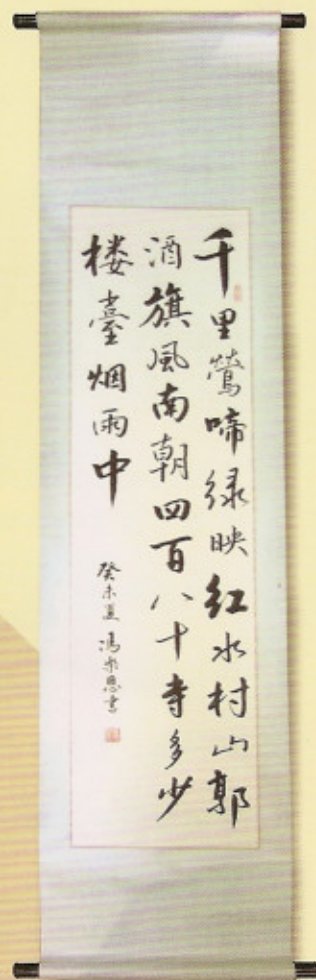 千里鶯啼绿映红水村山郭
酒旗風南朝四百八十寺多少
楼臺烟雨中
癸未夏冯乐恩書